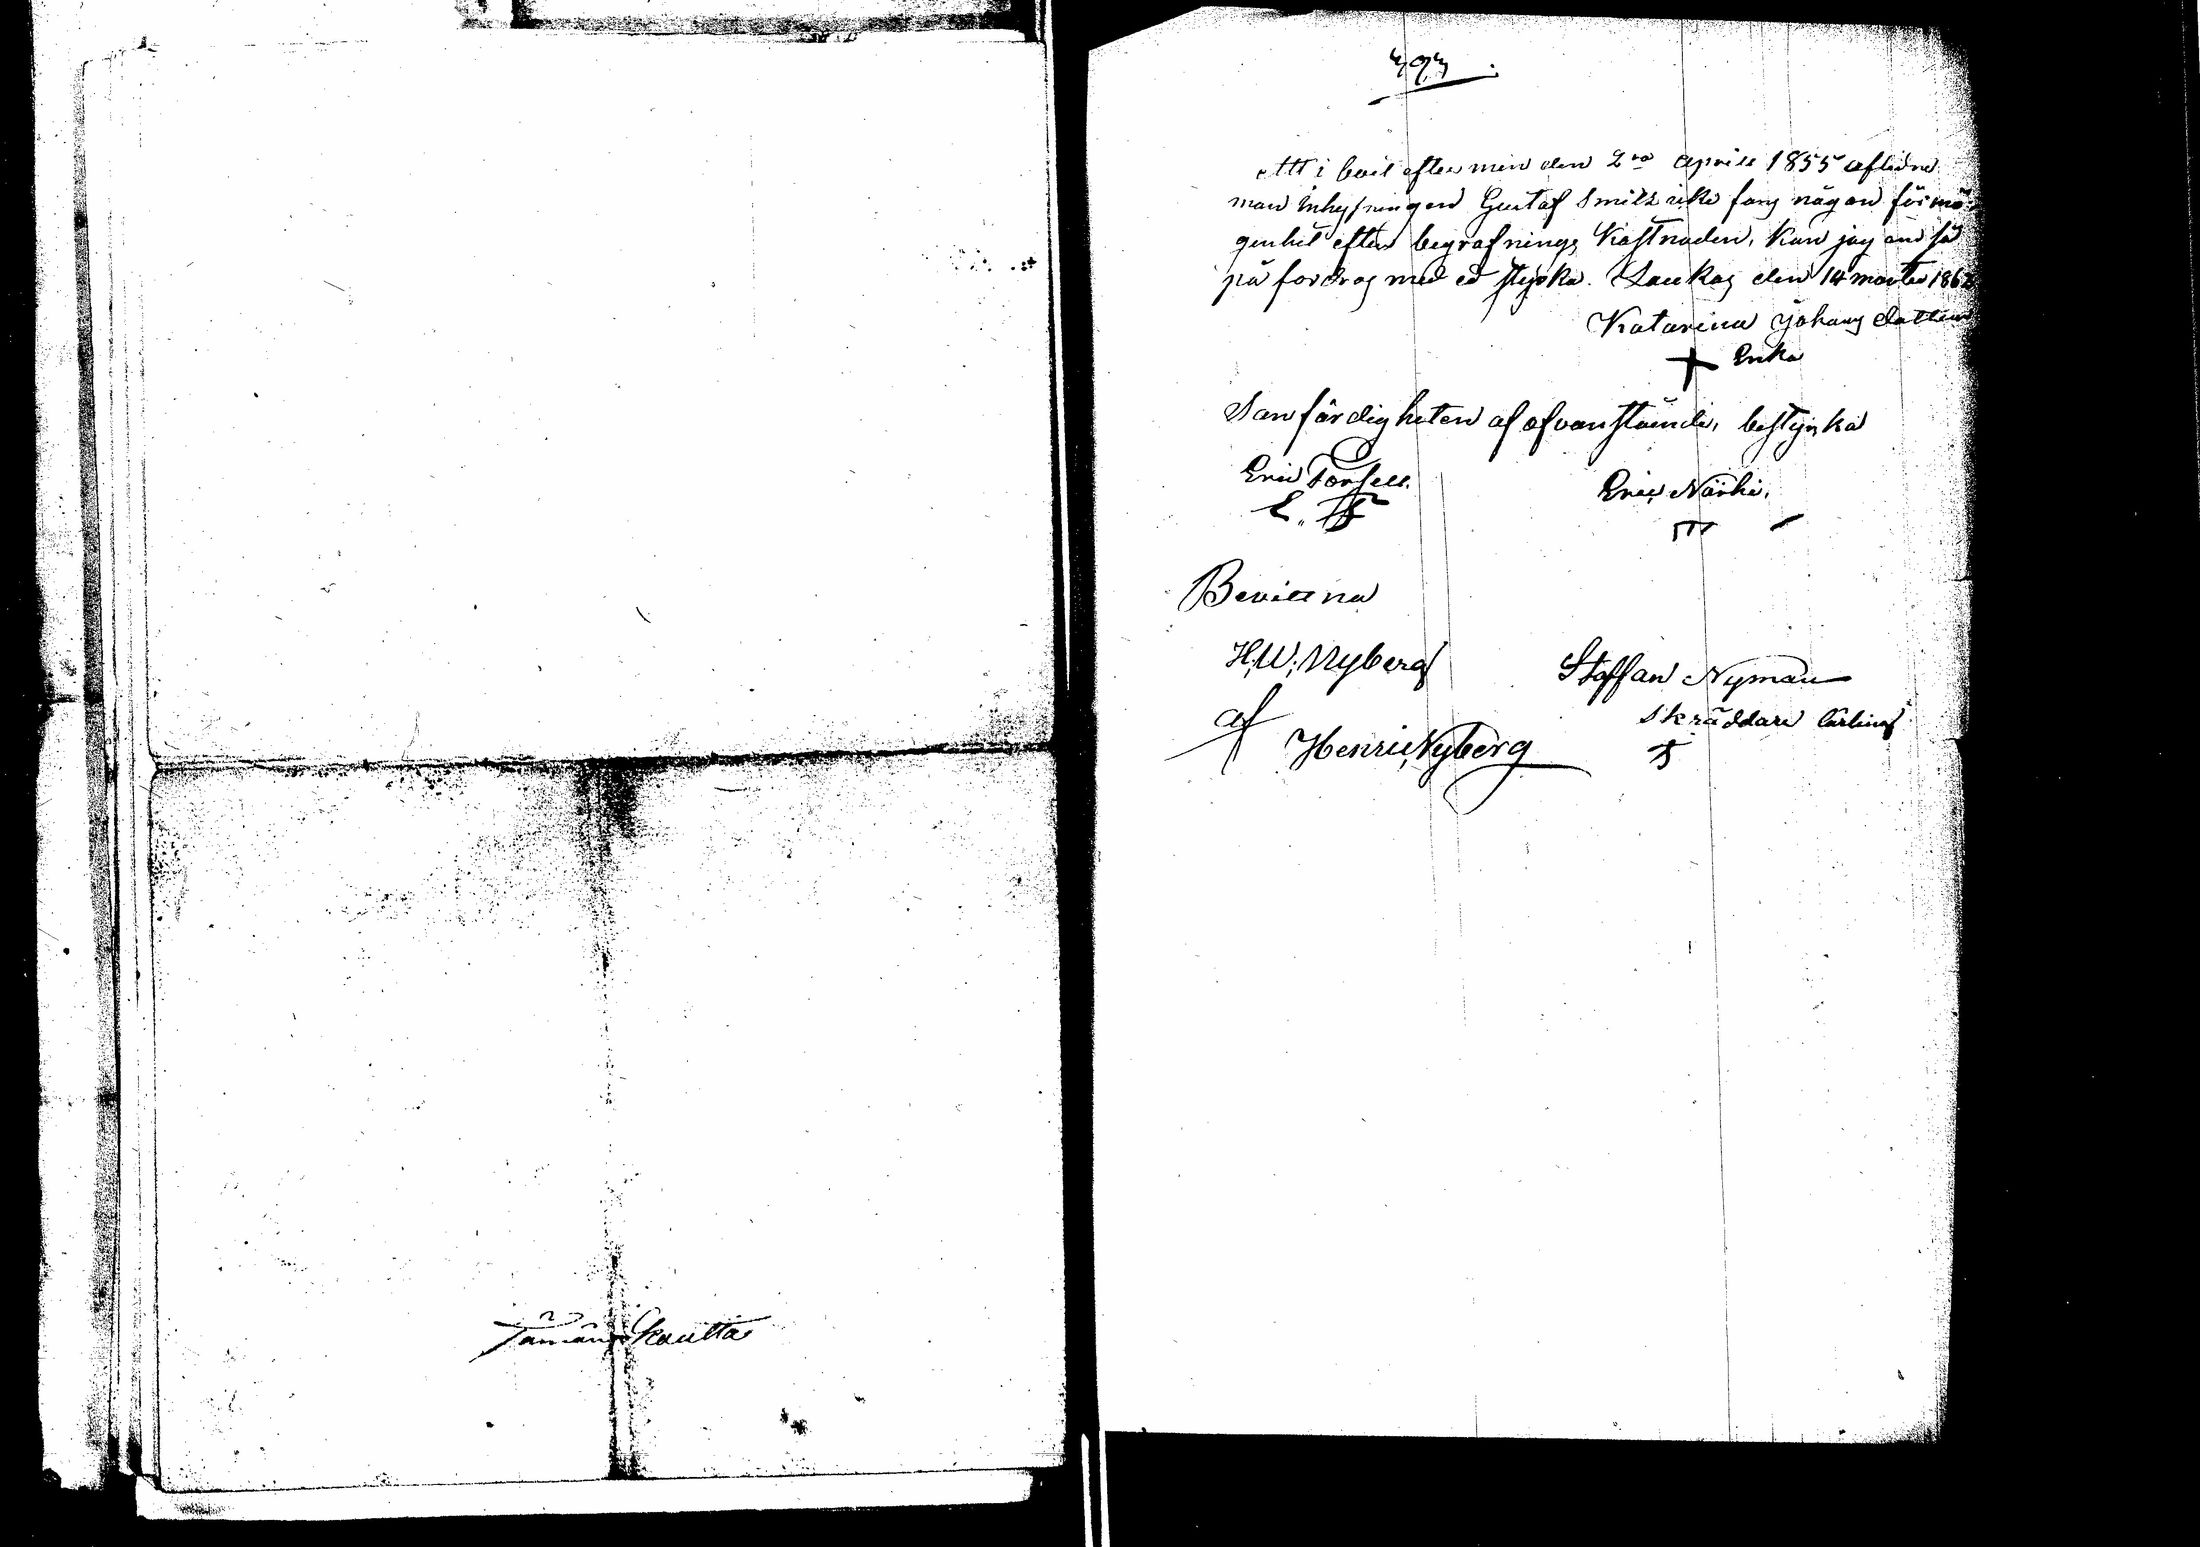 Att i boet efter min den 2ra April 1855 aflidne
man Inhysningen Gustaf Smitz icke fans någon förmö-
genhet efter begrafnings Kostnaden, kan jag änd så
på fordrag med ed styrka. Laukas den 14 martii 186
Katarina Johans dotter
Enka
Sanfärdigheten af ofvanstående, bestyrka
Eric Forsell.
E. F
Eric Närhi.
Bevittna
H. W. Nyberg
Staffan Nyman
af
Skräddare lärling
Henric Nyberg